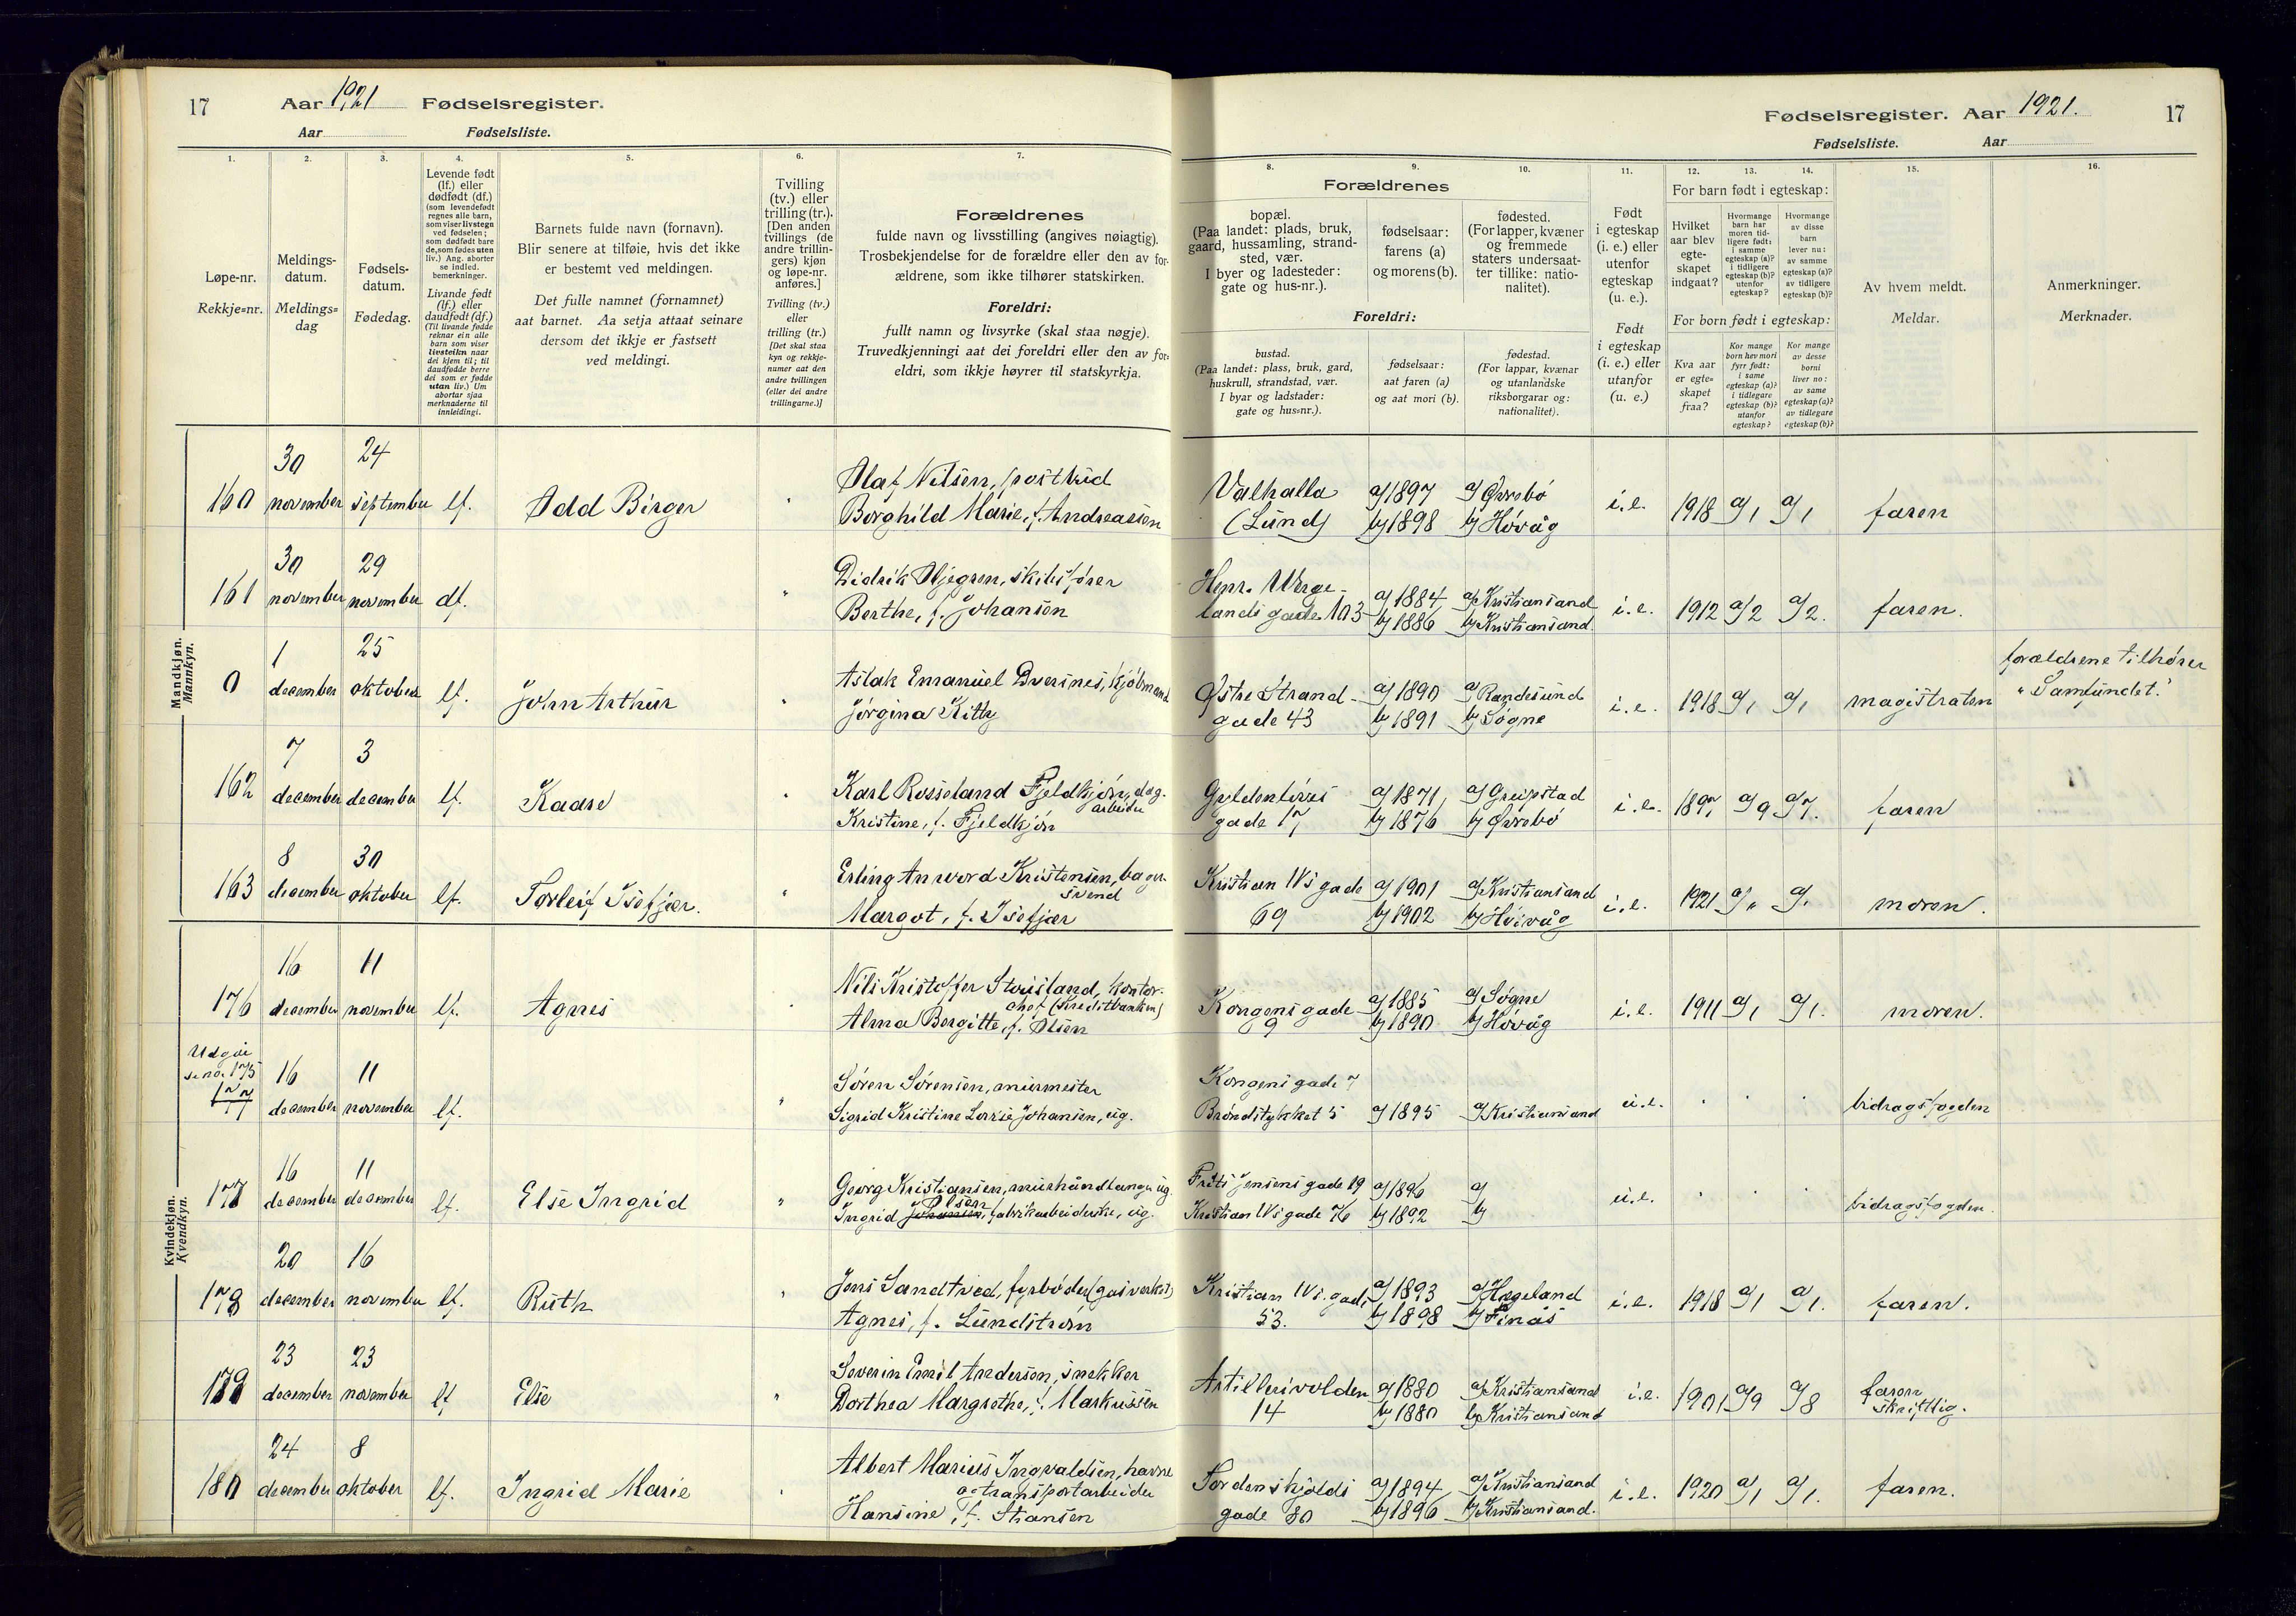 17 Aar 1921 Fødselsregister.
Aar Fødselsliste.
Fødselsregister. Aar 1921. 17
Fødselsliste. Aar
1. 2. 3. 4. 5. 6. 7. 8. 9. 10. 11. 12. 13. 14. 15. 16.
Løpe-nr.
Rekkje=nr.
Meldings-
datum.
Meldings=
dag
Fødsels-
datum.
Fødedag.
Levende født
(lf.) eller
dødfødt (df.)
(som levendefødt
regnes alle barn,
som viser livstegn
ved fødselen;
som dødfødt bare
de, som fødes uten
liv.) Ang. aborter
se indled.
bemerkninger.
Livande født
(lf.) eller
daudfødt (df.)
(Til livande fødde
reknar ein alle
barn som viser
livsteikn naar
dei kjem til; til
daudfødde berre
dei som er fødde
utan liv.) Um
abortar sjaa
merknaderne til
innleidingi.
Barnets fulde navn (fornavn).
Blir senere at tilføie, hvis det ikke
er bestemt ved meldingen.
Det fulle namnet (fornamnet)
aat barnet. Aa setja attaat seinare
dersom det ikkje er fastsett
ved meldingi.
Tvilling
(tv.) eller
trilling (tr.).
[Den anden
tvillings (de
andre trillin-
gers) kjøn
og løpe-nr.
anføres.]
Tvilling (tv.)
eller
trilling (tr.)
[Det skal staa
kyn og rekkje-
numer aat den
andre tvillingen
(eller dei andre
trillingarne.)]
Forældrenes
fulde navn og livsstilling (angives nøiagtig).
Trosbekjendelse for de forældre eller den av for-
ældrene, som ikke tilhører statskirken.
Foreldri:
fullt namn og livsyrke (skal staa nøgje).
Truvedkjenningi aat dei foreldri eller den av for=
eldri, som ikkje høyrer til statskyrkja.
Forældrenes
bopæl.
(Paa landet: plads, bruk,
gaard, hussamling, strand-
sted, vær.
I byer og ladesteder:
gate og hus-nr.).
fødselsaar:
farens (a)
og morens (b).
fødested.
(For lapper, kvæner
og fremmede
staters undersaat-
ter tillike: natio-
nalitet).
Foreldri:
bustad.
(Paa landet: plass, bruk, gard,
huskrull, strandstad, vær.
I byar og ladstader:
gate og hus=nr.).
fødselsaar:
aat faren (a)
og aat mori (b).
fødestad.
(For lappar, kvænar
og utanlandske
riksborgarar og:
nationalitet).
Født
i egteskap
(i. e.) eller
utenfor
egteskap
(u. e.).
Født
i egteskap
(i. e.) eller
utanfor
(u. e.)
For barn født i egteskap:
Hvilket
aar blev
egte-
skapet
indgaat?
Hvormange
barn har
moren tid-
ligere født:
i samme
egteskap (a)?
i tidligere
egteskap (b)?
utenfor
egteskap?
Hvormange
av disse
barn
lever nu:
av samme
egteskap (a)?
av tidligere
egteskap (b)?
For born født i egteskap:
Kva aar
er egte=
skapet
fraa?
Kor mange
born hev mori
fyrr født:
i same
egteskap (a)?
i tidlegare
egteskap (b)?
utanfor
egteskap?
Kor mange
av desse
borni
liver no:
av same
egteskap (a)?
av tidlegare
egteskap (b)?
Av hvem meldt.
Meldar.
Anmerkninger.
Merknader.
Mandkjøn.
Mannkyn.
160 30 november 24 september lf. Odd Birger " Olaf Nilsen, postbud
Borghild Marie, f. Andreassen
Valhalla (Lund) a/1897 b/1898 a/Øvrebø b/Høvåg i.e. 1918 a/1 a/1 faren
161 30 november 29 november df. " Didrik Stjegren, skibsfører
Berthe, f. Johansen
Henr. Wergelands gade 103 a/1884 b/1886 a/Kristiansand b/Kristiansand. i.e. 1912 a/2 a/2. faren.
0 1 december 25 oktober lf. John Arthur " Aslak Emanuel Dversnes, kjøbmand
Jørgina Kitty
Østre Strandgade 43 a/1890 b/1891 a/Randesund b/Søgne i.e. 1918 a/1 a/1 magistraten forældrene tilhører
"Samfundet."
162 7 december 3 december lf. Kaare " Karl Rosseland Fjeldkjøn, dag-
arbeider
Kristine, f. Fjeldkjøn
Gyldenløves gade 17 a/1871 b/1876 a/Greipstad b/Øvrebø i.e. 1897 a/9 a/7. faren
163 8 december 30 oktober lf. Torleif Isefjær. " Erling Anword Kristensen, bager-
svend
Margot, f. Isefjær
Kristian IVs gade 69 a/1901 b/1902 a/Kristiansand b/Høivåg i.e. 1921 a/" a/" moren.
Kvindekjøn.
Kvendkyn.
176 16 december 11 november lf. Agnes " Nils Kristoffer Stousland, kontor-
chef (Kreditbanken)
Alma Bergitte, f. Olsen
Kongens gade 9 a/1885 b/1890 a/Søgne b/Høvåg i.e. 1911 a/1 a/1. moren.
Udgår
se no. 175
177 16 december 11 november lf. " Søren Sørensen, murmester
Sigrid Kristine Lovise Johansen, ug.
Kongens gade 7
Brøndstykket 5 a/1895 a/Kristiansand u.e. " " " bidragsfogden
177 16 december 11 december lf. Else Ingrid " Georg Kristiansen, murhåndlanger, ug.
Olsen
Ingrid Johansen, fabrikarbeiderske, ug.
Frits Jensens gade 19 a/1896 a/
Kristian IVs gade 76 b/1892 b/ u.e. " " " bidragsfogden.
178 20 december 16 november lf. Ruth " Jens Sandtved, fyrbøder (gasverket)
Agnes, f. Lundstrøm
Kristian IVs. gade 53. a/1893 b/1898 a/Hægeland b/Finås i.e. 1918 a/1 a/1. faren.
179 23 december 23 november lf Else " Severin Emil Andersen, snekker
Dorthea Margrethe, f. Markussen
Artillerivolden 14 a/1880 b/1880 a/Kristiansand b/Kristiansand i.e. 1901 a/9 a/8 faren
skriftlig.
180 24 december 8 oktober lf. Ingrid Marie " Albert Marius Ingvaldsen, havne
og transportarbeider
Hansine, f. Stiansen
Tordenskjolds gade 80 a/1894 b/1896 a/Kristiansand b/Kristiansand. i.e. 1920 a/1 a/1. faren.